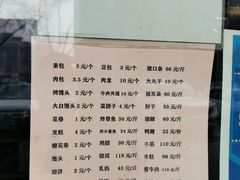 素包 3 元/个 豆包 3 元/个 猪口条 66 元/斤
肉包 3.5 元/个 肉龙 元/个 大丸子 元/个
烤馒头 2 元/个 牛肉夹馍 元/个 猪耳朵 80 元/斤
大白馒头 2 元/个 菜团子 4 元/个 肘子 55 元/斤
花卷 元/个 炸带鱼 36 元/斤 鸭翅 55 元/斤
发糕 4 元/个 炸小黄鱼 24 元/斤 鸭腿 44 元/斤
糖花卷 2 元/个 鸡翅 50 元/斤 小肠 110 元/斤
馒头 1 元/个 猪尾 118 元/斤 牛肚 90 元/斤
烧饼 2 元/个 乳鸽 45 元/个 酱牛肉